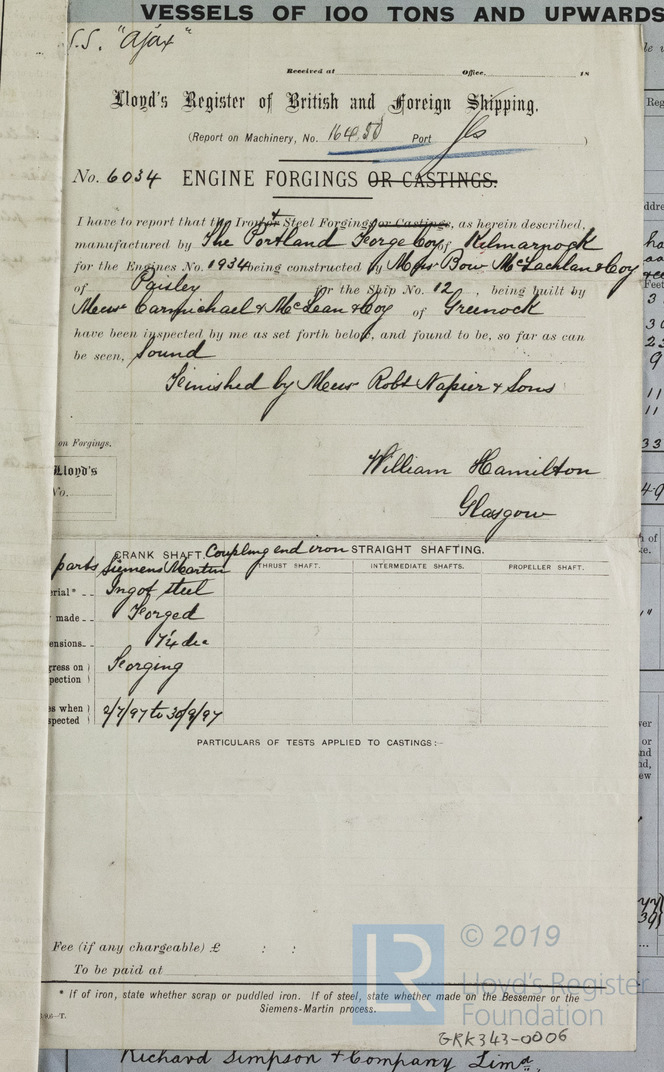 VESSELS OF 100 TONS AND UPWARDS
S.S. "Ajax"
Received at Office. 18
Lloyd's Register of British and Foreign Shipping.
(Report on Machinery, No. 16450 Port Gls )
No. 6034 ENGINE FORGINGS OR CASTINGS.
I have to report that the Iron or & Steel Forgings or Castings, as herein described,
manufactured by The Portland Forge Coy of Kilmarnock
for the Engines No. 1934 being constructed by Messrs Bow McLachlan & Coy
of Paisley for the Ship No. 12, being built by
Messrs Carmichael & McLean & Coy of Greenock
have been inspected by me as set forth below, and found to be, so far as can
be seen, Sound
Finished by Messrs Robt Napier & Sons
on Forgings.
Lloyd's
No.
William Hamilton
Glasgow
CRANK SHAFT. Coupling end iron STRAIGHT SHAFTING.
parts Siemens Martin THRUST SHAFT. INTERMEDIATE SHAFTS. PROPELLER SHAFT.
erial* Ingot steel
made Forged
ensions 7¼ dia
gress on
pection Forging
s when
spected 2/7/97 to 30/9/97
PARTICULARS OF TESTS APPLIED TO CASTINGS:-
Fee (if any chargeable) £ : :
To be paid at
* If of iron, state whether scrap or puddled iron. If of steel, state whether made on the Bessemer or the
Siemens-Martin process.
© 2019
LR
Lloyd's Register
Foundation
GRK343-0006
Richard Simpson & Company Limd.